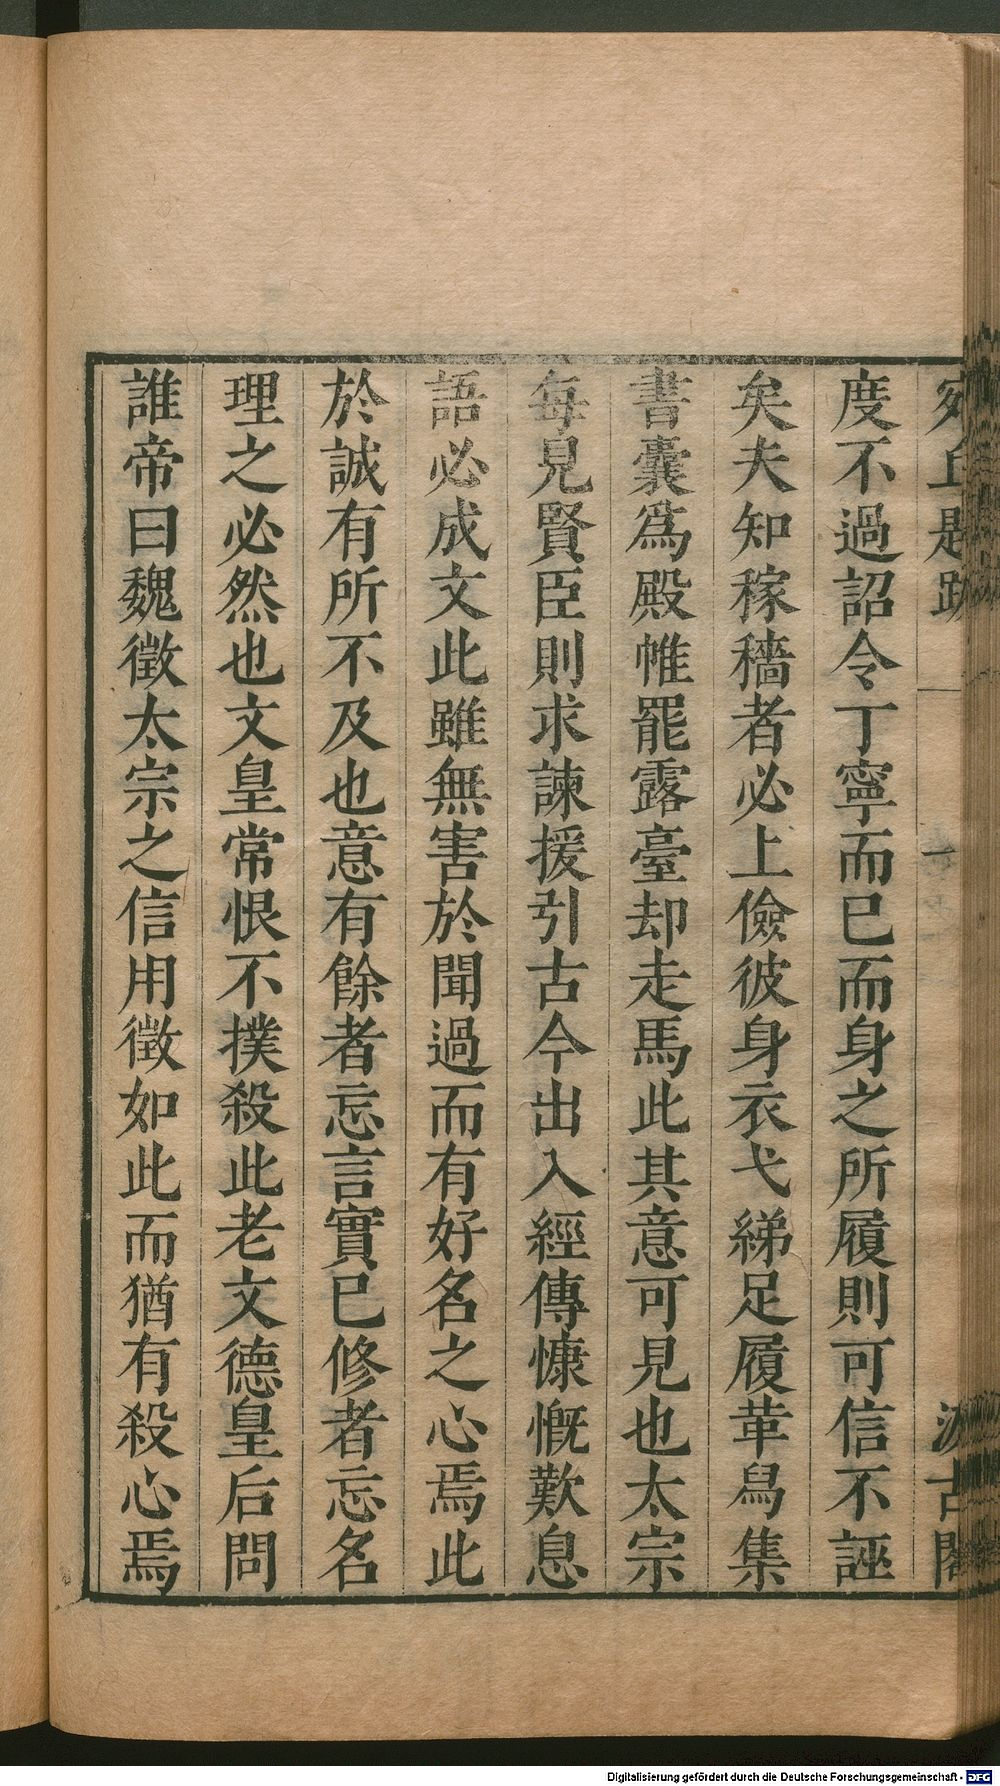 宛丘題跋 一 汲古閣
度不過詔令丁寧而已而身之所履則可信不誣
矣夫知稼穡者必上儉彼身衣弋綈足履革舄集
書囊爲殿帷罷露臺却走馬此其意可見也太宗
每見賢臣則求諫援引古今出入經傳慷慨歎息
語必成文此雖無害於聞過而有好名之心焉此
於誠有所不及也意有餘者忘言實已修者忘名
理之必然也文皇常恨不撲殺此老文德皇后問
誰帝曰魏徵太宗之信用徵如此而猶有殺心焉
Digitalisierung gefördert durch die Deutsche Forschungsgemeinschaft - DFG